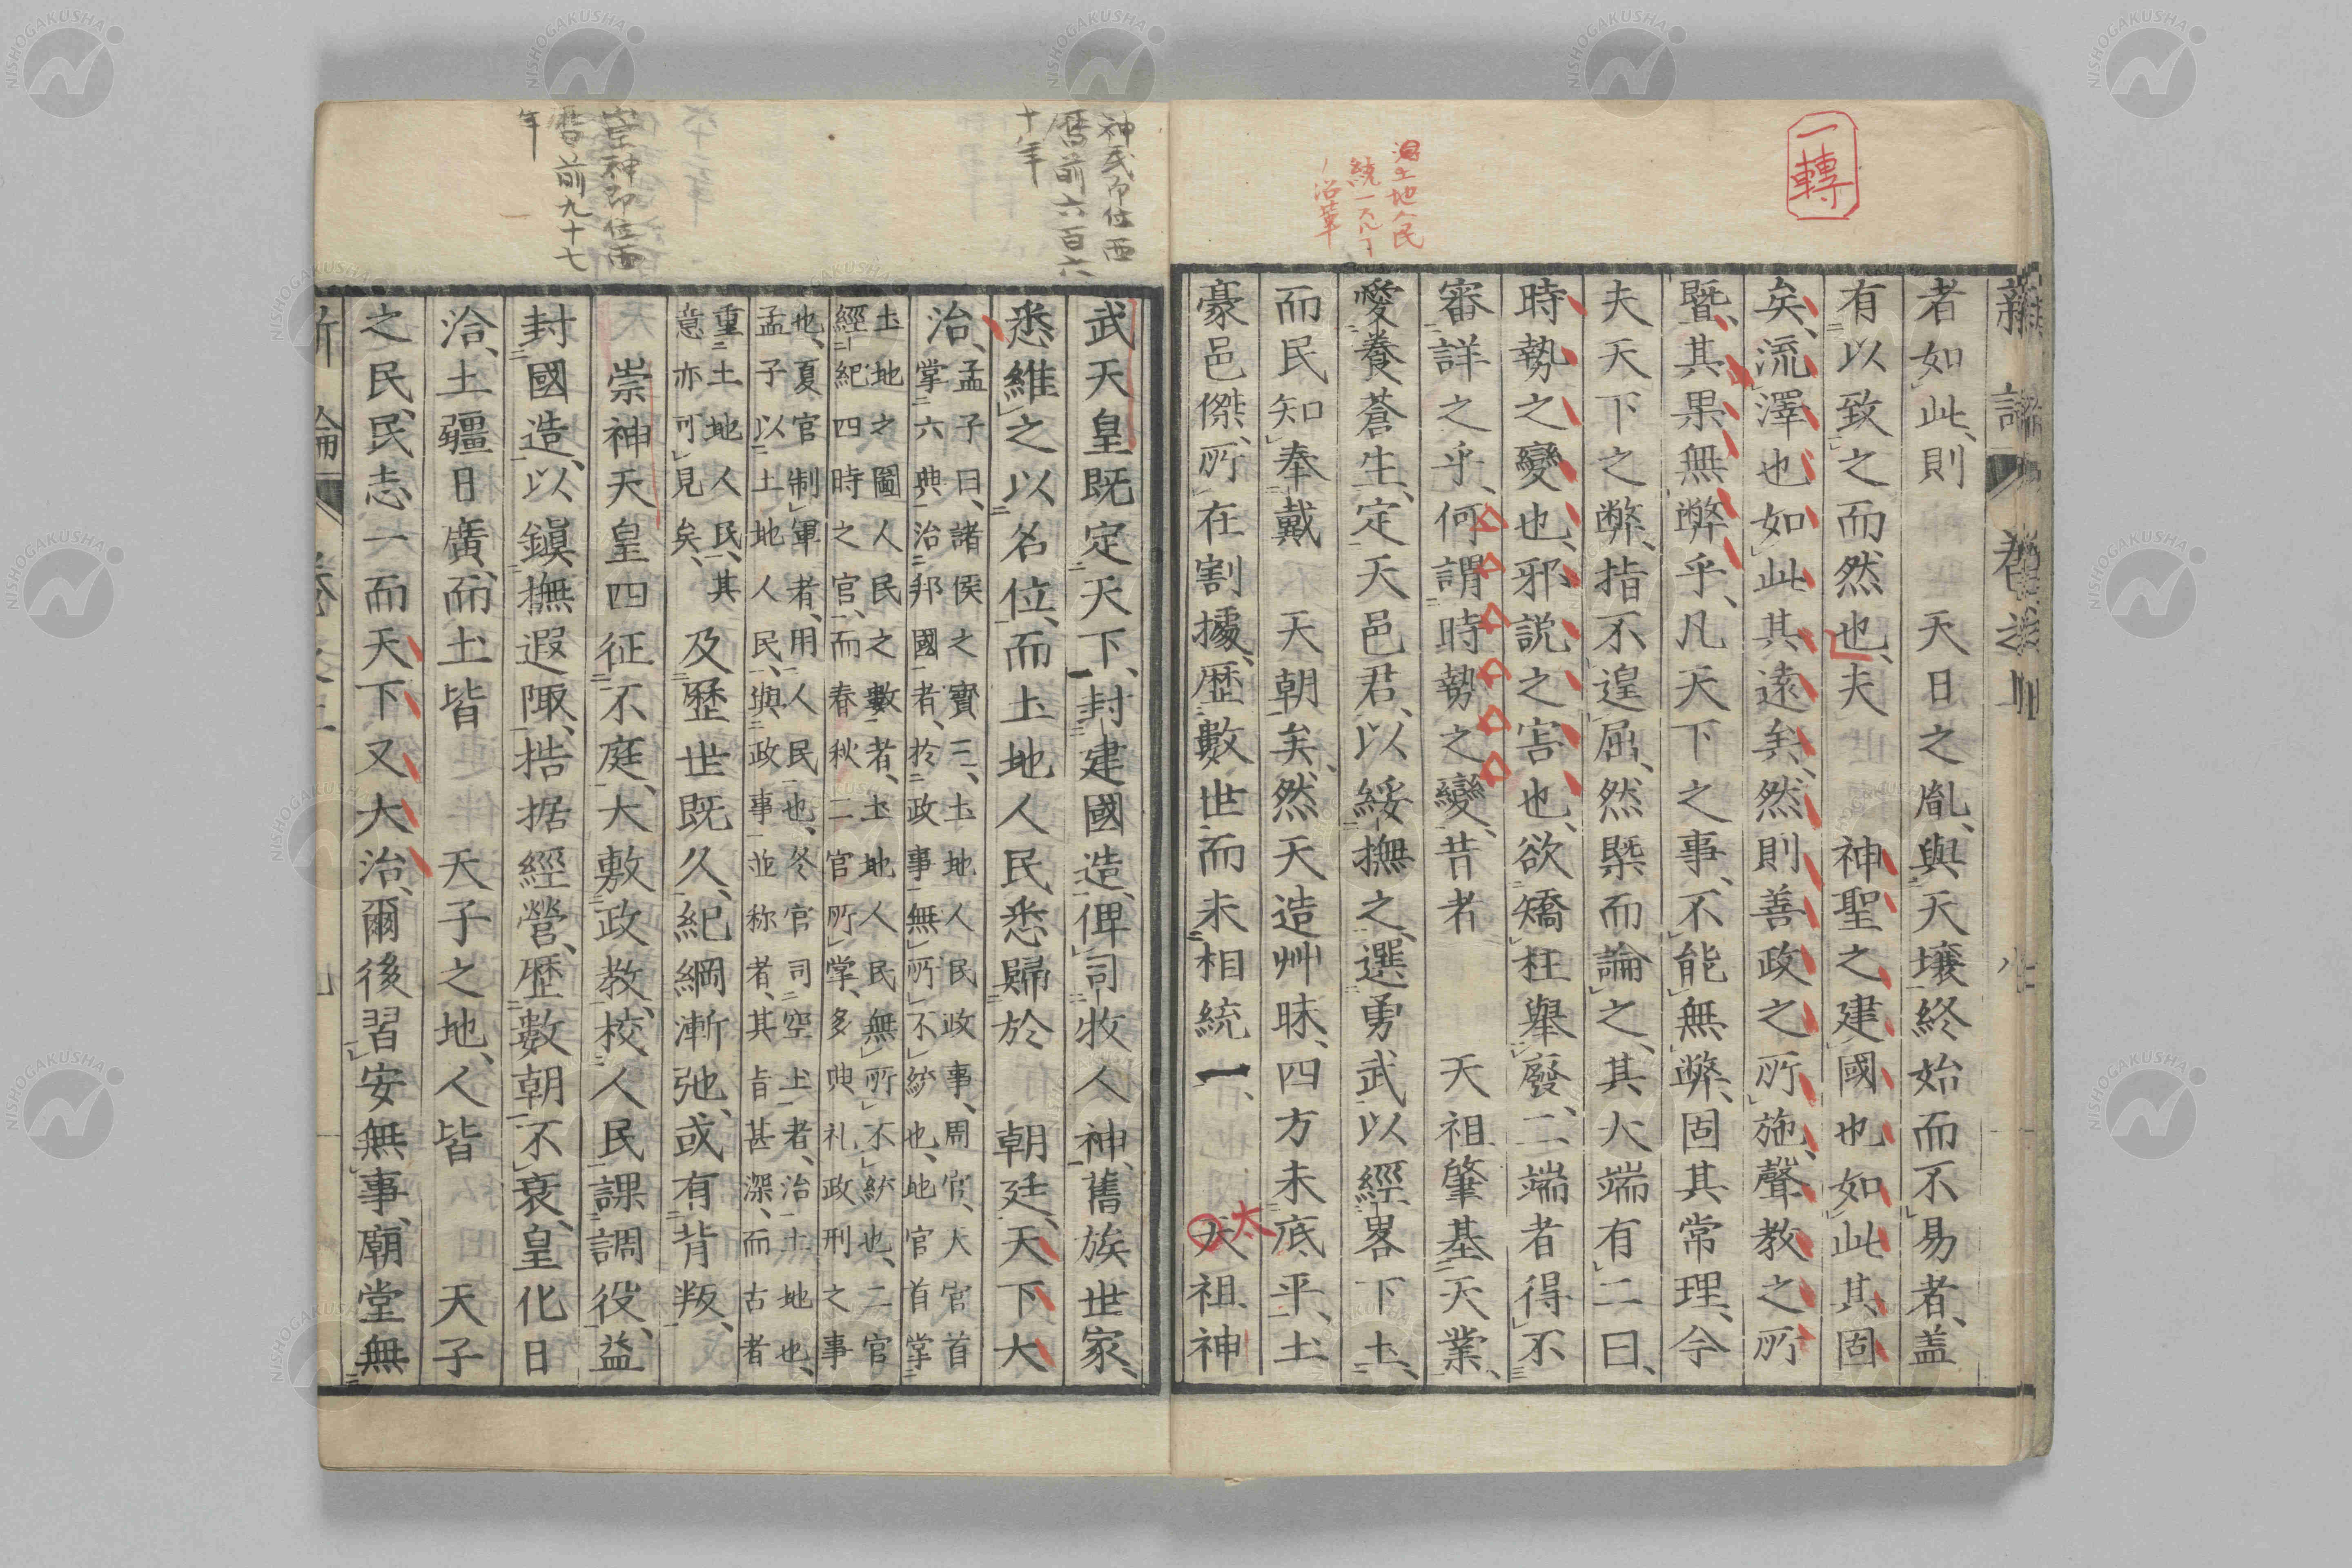 一轉
者如此、則　天日之胤、與天壤終始而不易者、盖
有以致之而然也、夫　神聖之建國也如此其固
矣、流澤也如此其遠矣、然則善政之所施、聲教之所
曁、其果無弊乎、凡天下之事、不能無弊、固其常理、今
夫天下之弊、指不遑屈、然槩而論之、其大端有二曰、
時勢之變也、邪説之害也、欲矯枉舉廢、二端者得不
審詳之乎、何謂時勢之變、昔者　天祖肇基天業、
愛養蒼生、定天邑君、以綏撫之、選勇武以經畧下土、
而民知奉戴　天朝矣、然天造艸昧、四方未底平、土
豪邑傑、所在割據、歷數世而未相統一、　太祖神
太
神武即位西
暦前六百六
十年
武天皇既定天下、封建國造、俾司牧人神、舊族世家、
悉維之以名位、而土地人民悉歸於　朝廷、天下大
治、孟子曰、諸侯之寶三、土地人民政事、周官、大宰首
掌六典治邦國者、於政事無所不統也、地官首掌
土地之圖人民之數者、土地人民無所不統也、二官
經紀四時之官、而春秋二官所掌、多典礼政刑之事
也、夏官制軍者、用人民也、冬官司空土者、治土地也、
孟子以土地人民、與政事並称者、其旨甚深、而古者
重土地人民、其
意亦可見矣、及歷世既久、紀綱漸弛、或有背叛、
崇神即位西
暦前九十七
年
崇神天皇四征不庭、大敷政教、校人民課調役、益
封國造、以鎭撫遐陬、拮据經營、歷數朝不衰、皇化日
洽、土疆日廣、而土皆　天子之地、人皆　天子
之民、民志一而天下又大治、爾後習安無事、廟堂無
新論